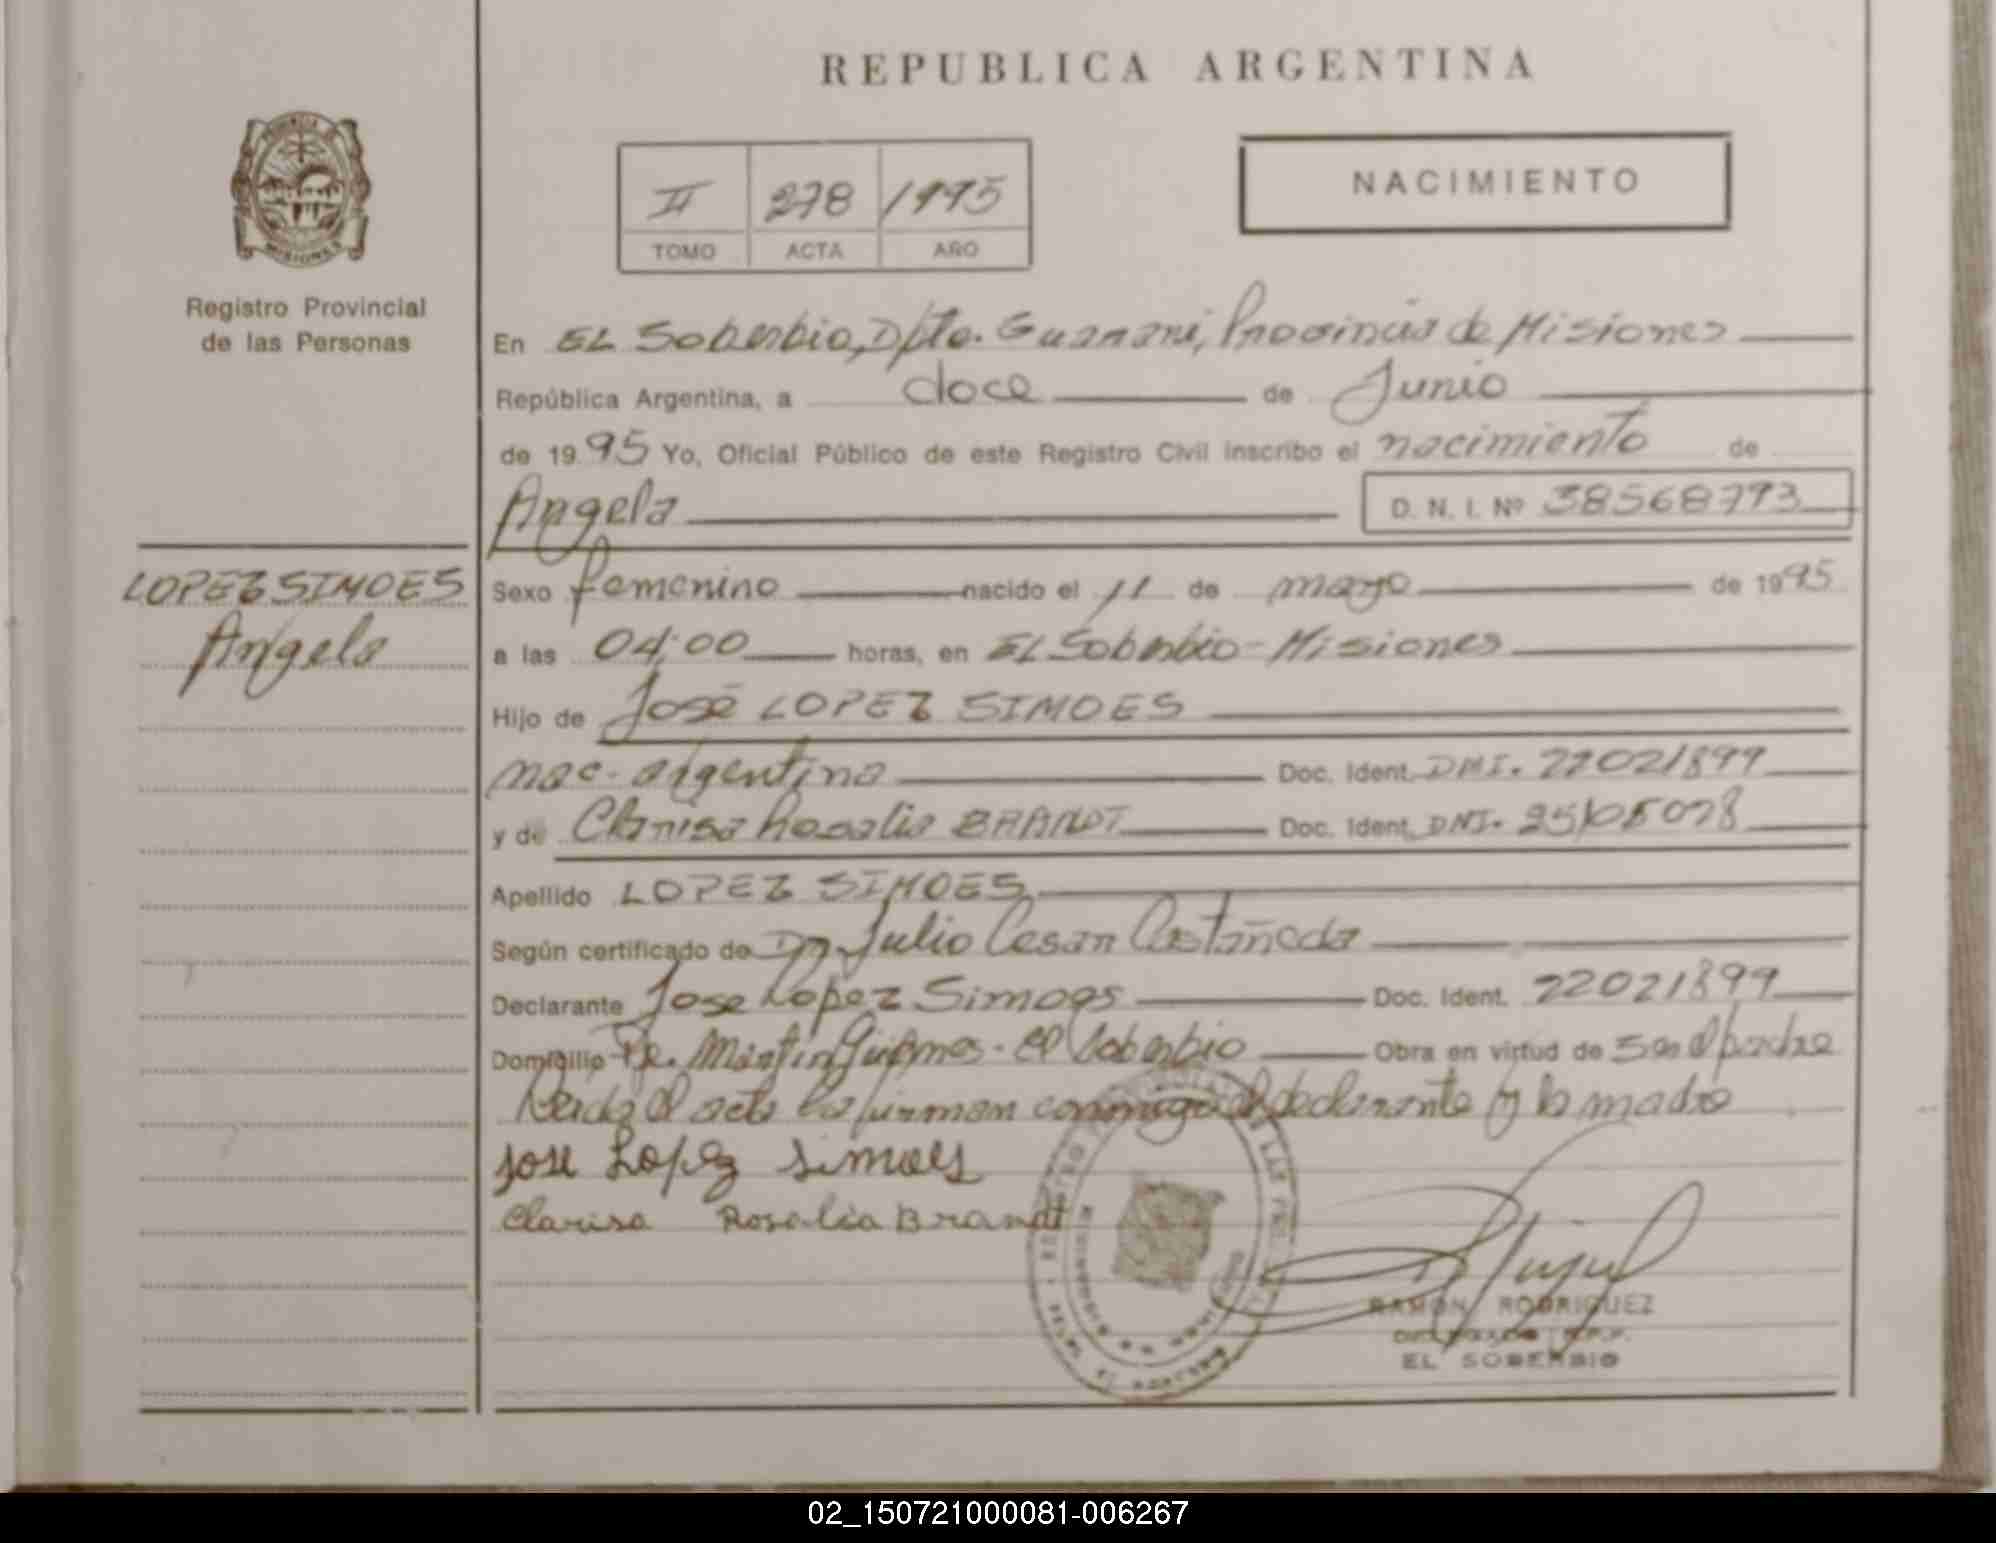 REPUBLICA ARGENTINA
PROVINCIA DE
MISIONES
Registro Provincial
de las Personas
II 278 1995
TOMO ACTA AÑO
NACIMIENTO
En EL Soberbio, Dpto. Guarani, Provincia de Misiones
República Argentina, a doce de Junio
de 1995 Yo, Oficial Público de este Registro Civil inscribo el nacimiento de
Angela D. N. I. Nº 38568793
LOPEZ SIMOES
Angela
Sexo femenino nacido el 11 de mayo de 1995
a las 04:00 horas, en EL Soberbio - Misiones
Hijo de José LOPEZ SIMOES
nac. argentina Doc. Ident. DNI. 22021899
y de Clarisa Rosalia BRANDT Doc. Ident. DNI.
Apellido LOPEZ SIMOES
Según certificado de Dr Julio Cesar Castañeda
Declarante Jose Lopez Simoes Doc. Ident. 22021899
Domicilio Martin Guemes - El Soberbio Obra en virtud de Ser el padre
Leida el acta la firman conmigo el declarante y la madre
Jose Lopez Simoes
Clarisa Rosalia Brandt
RAMON RODRIGUEZ
EL SOBERBIO
02_150721000081-006267